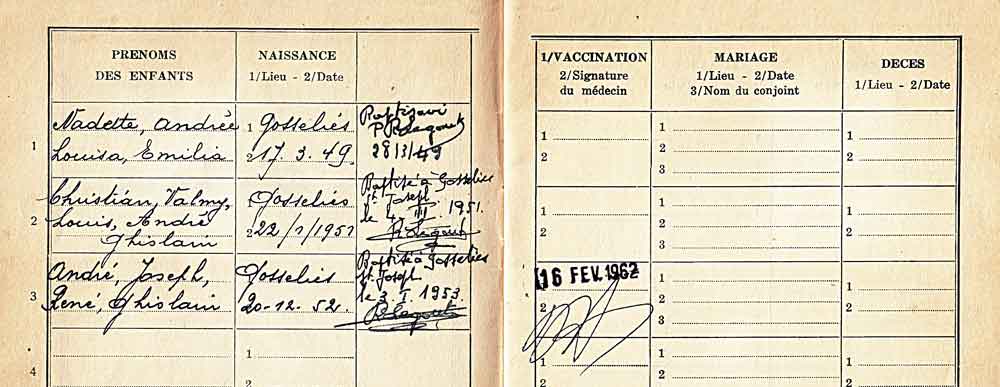 PRENOMS
DES ENFANTS
NAISSANCE
1/Lieu - 2/Date
1
Nadette, Andrée
Louisa, Emilia
1 Gosselies
2 17. 3. 49
Baptisavi
28/3/49
2
Christian, Valmy,
Louis, André
Ghislain
1 Gosselies
2 22/1/1951
Baptisé à Gosselies
St Joseph
le 4. III. 1951.
3
André, Joseph,
René, Ghislain
Gosselies
20-12. 52.
Baptisé à Gosselies
St Joseph
le 3. I. 1953.
4
1
2
1/VACCINATION
2/Signature
du médecin
MARIAGE
1/Lieu - 2/Date
3/Nom du conjoint
DECES
1/Lieu - 2/Date
1
2
1
2
3
1
2
1
2
1
2
3
1
2
16 FEV. 1962
2
1
2
3
1
2
1
2
1
2
1
2